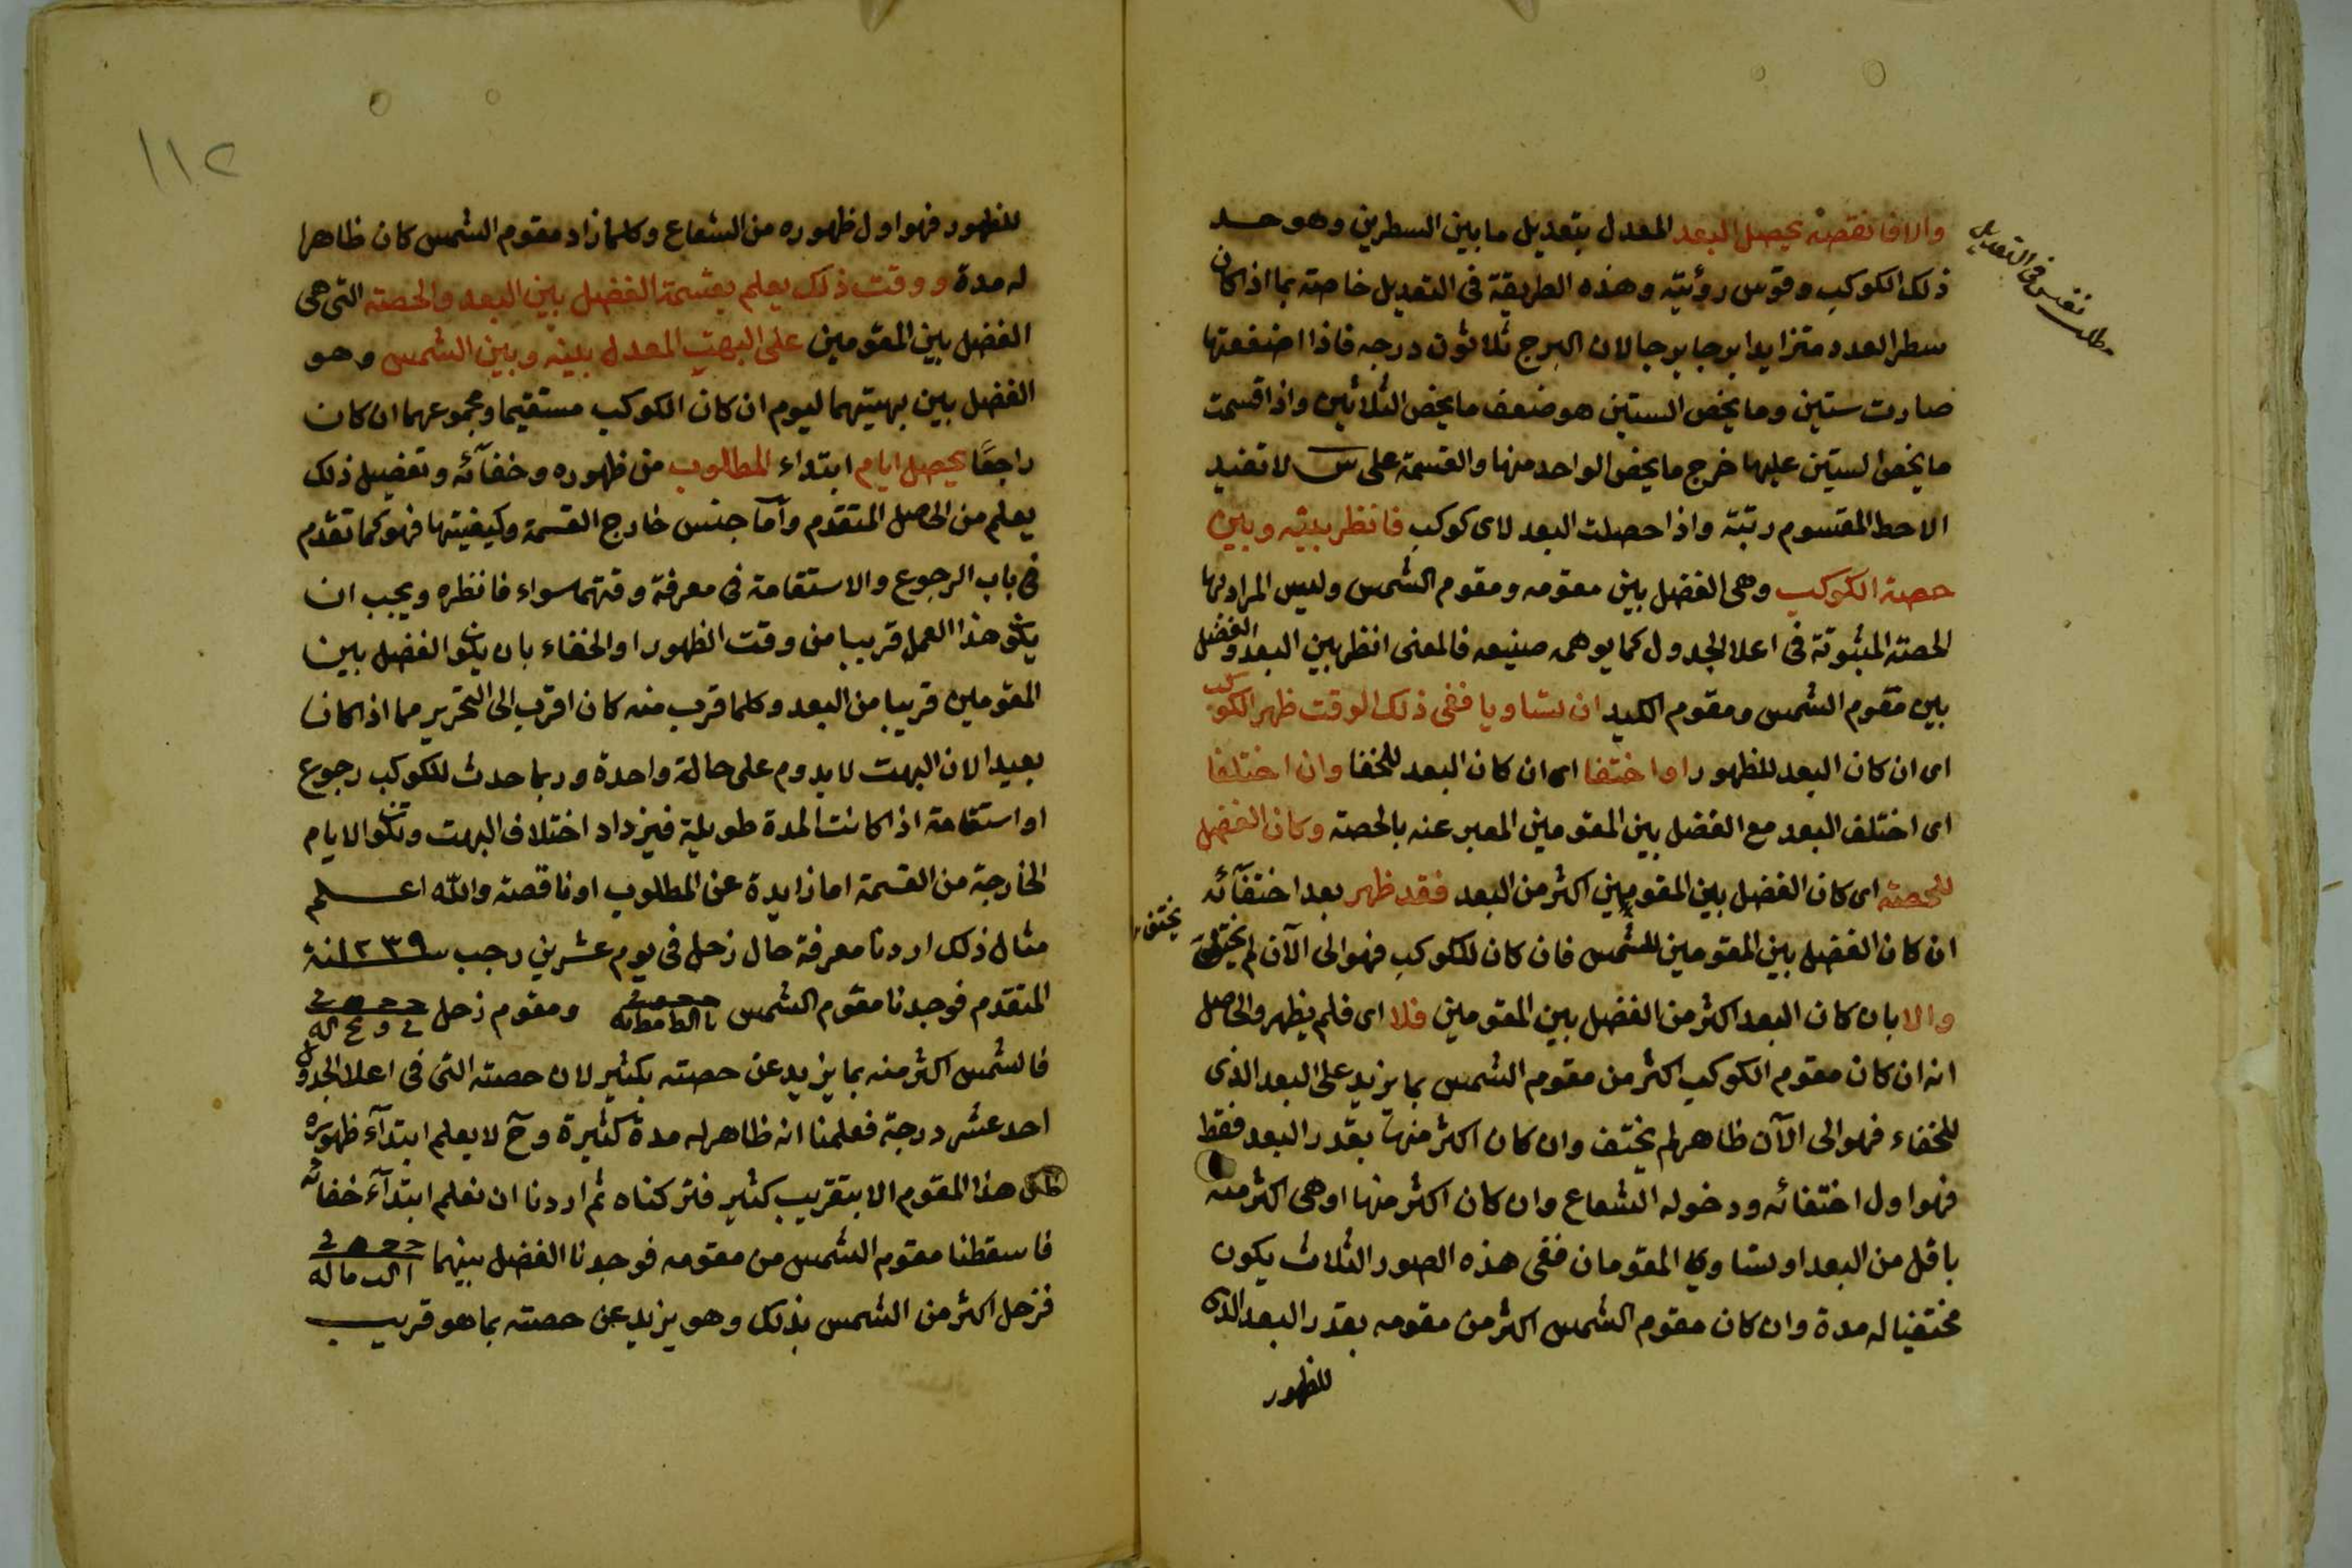 والا فانقصه يحصل البعد المعدل بتعديل ما بين السطرين وهو حد
مطلب نفيس في التعديل
ذلك الكوكب وقوس رؤيته وهذه الطريقة في التعديل خاصة بما اذا كان
سطر العدد متزايدا برجا برجا لان البرج ثلاثون درجه فاذا اضفعتها
صارت ستين وما يخص الستين هو ضعف ما يخص الثلاثين واذا قسمت
ما يخص الستين عليها خرج ما يخص الواحد منها والقسمة على س لا تفيد
الا حط المقسوم رتبة واذا حصلت البعد لاى كوكب فانظر بينه وبين
حصة الكوكب وهى الفضل بين مقومه ومقوم الشمس وليس المراد بها
الحصة المثبوتة في اعلا الجدول كما يوهمه صنيعه فالمعنى انظر بين البعد والفضل
بين مقوم الشمس ومقوم الكب ان تساويا ففى ذلك الوقت ظهر الكوكب
اى ان كان البعد للظهور او اختفا اى ان كان البعد للخفا وان اختلفا
اى اختلف البعد مع الفضل بين المقومين المعبر عنه بالحصة وكان الفضل
للحصة اى كان الفضل بين المقومين اكثر من البعد فقد ظهر بعد اختفآئه
ان كان الفضل بين المقومين للشمس فان كان للكوكب فهو الى الآن لم يختف
يختف
والا بان كان البعد اكثر من الفضل بين المقومين فلا اى فلم يظهر والحاصل
انه ان كان مقوم الكوكب اكثر من مقوم الشمس بما يزيد على البعد الذى
للخفاء فهو الى الآن ظاهر لم يختف وان كان اكثر منها بقدر البعد فقط
فهو اول اختفائه ودخوله الشعاع وان كان اكثر منها او هى اكثر منه
باقل من البعد او تساوى المقومان ففى هذه الصور الثلاث يكون
مختفيا له مدة وان كان مقوم الشمس اكثر من مقومه بقدر البعد الذى
للظهور
١١٢
للظهور فهو اول ظهوره من الشعاع وكلما زاد مقوم الشمس كان ظاهرا
له مدة ووقت ذلك يعلم بقسمة الفضل بين البعد والحصة التى هى
الفضل بين المقومين على البهت المعدل بينه وبين الشمس وهو
الفضل بين بهتيهما ليوم ان كان الكوكب مستقيما ومجموعهما ان كان
راجعًا يحصل ايام ابتداء المطلوب من ظهوره وخفآئه وتفصيل ذلك
يعلم من الحاصل المتقدم وآما جنس خارج القسمة وكيفيتها فهو كما تقدم
في باب الرجوع والاستقامة في معرفة وقتهما سواء فانظره ويجب ان
يكون هذا العمل قريبا من وقت الظهور او الخفاء بان يكون الفضل بين
المقومين قريبا من البعد وكلما قرب منه كان اقرب الى التحرير مما اذا كان
بعيدا لان البهت لا يدوم على حالة واحدة وربما حدث للكوكب رجوع
او استقامة اذا كانت المدة طويلة فيزداد اختلاف البهت وتكون الايام
الخارجة من القسمة اما زايدة عن المطلوب او ناقصة والله اعلم
مثال ذلك اردنا معرفة حال زحل في يوم عشرين رجب سنة ١٢٣٩
المتقدم فوجدنا مقوم الشمس ومقوم زحل
فالشمس اكثر منه بما يزيد عن حصته بكثير لان حصته التى في اعلا الجدول
احد عشر درجة فعلمنا انه ظاهر له مدة كثيرة وح لا يعلم ابتدآء ظهوره
من هذا المقوم الا بتقريب كثير فتركناه ثم اردنا ان نعلم ابتدآء خفائه
فاسقطنا مقوم الشمس من مقومه فوجدنا الفضل بينهما
فزحل اكثر من الشمس بذلك وهو يزيد عن حصته بما هو قريب